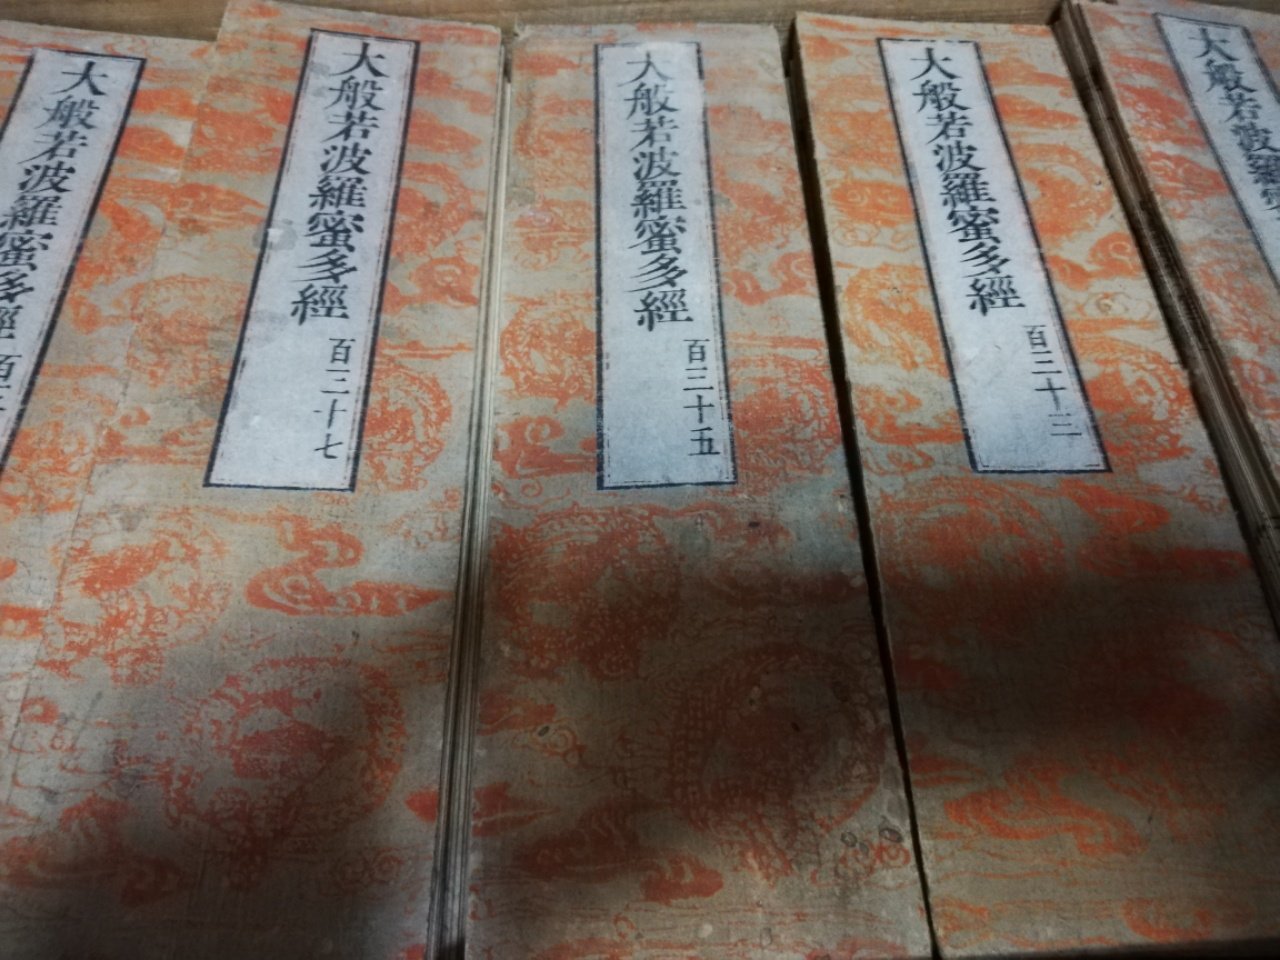 大般若波羅蜜多經
大般若波羅蜜多經 百三十七
大般若波羅蜜多經 百三十五
大般若波羅蜜多經 百三十三
大般若波羅蜜